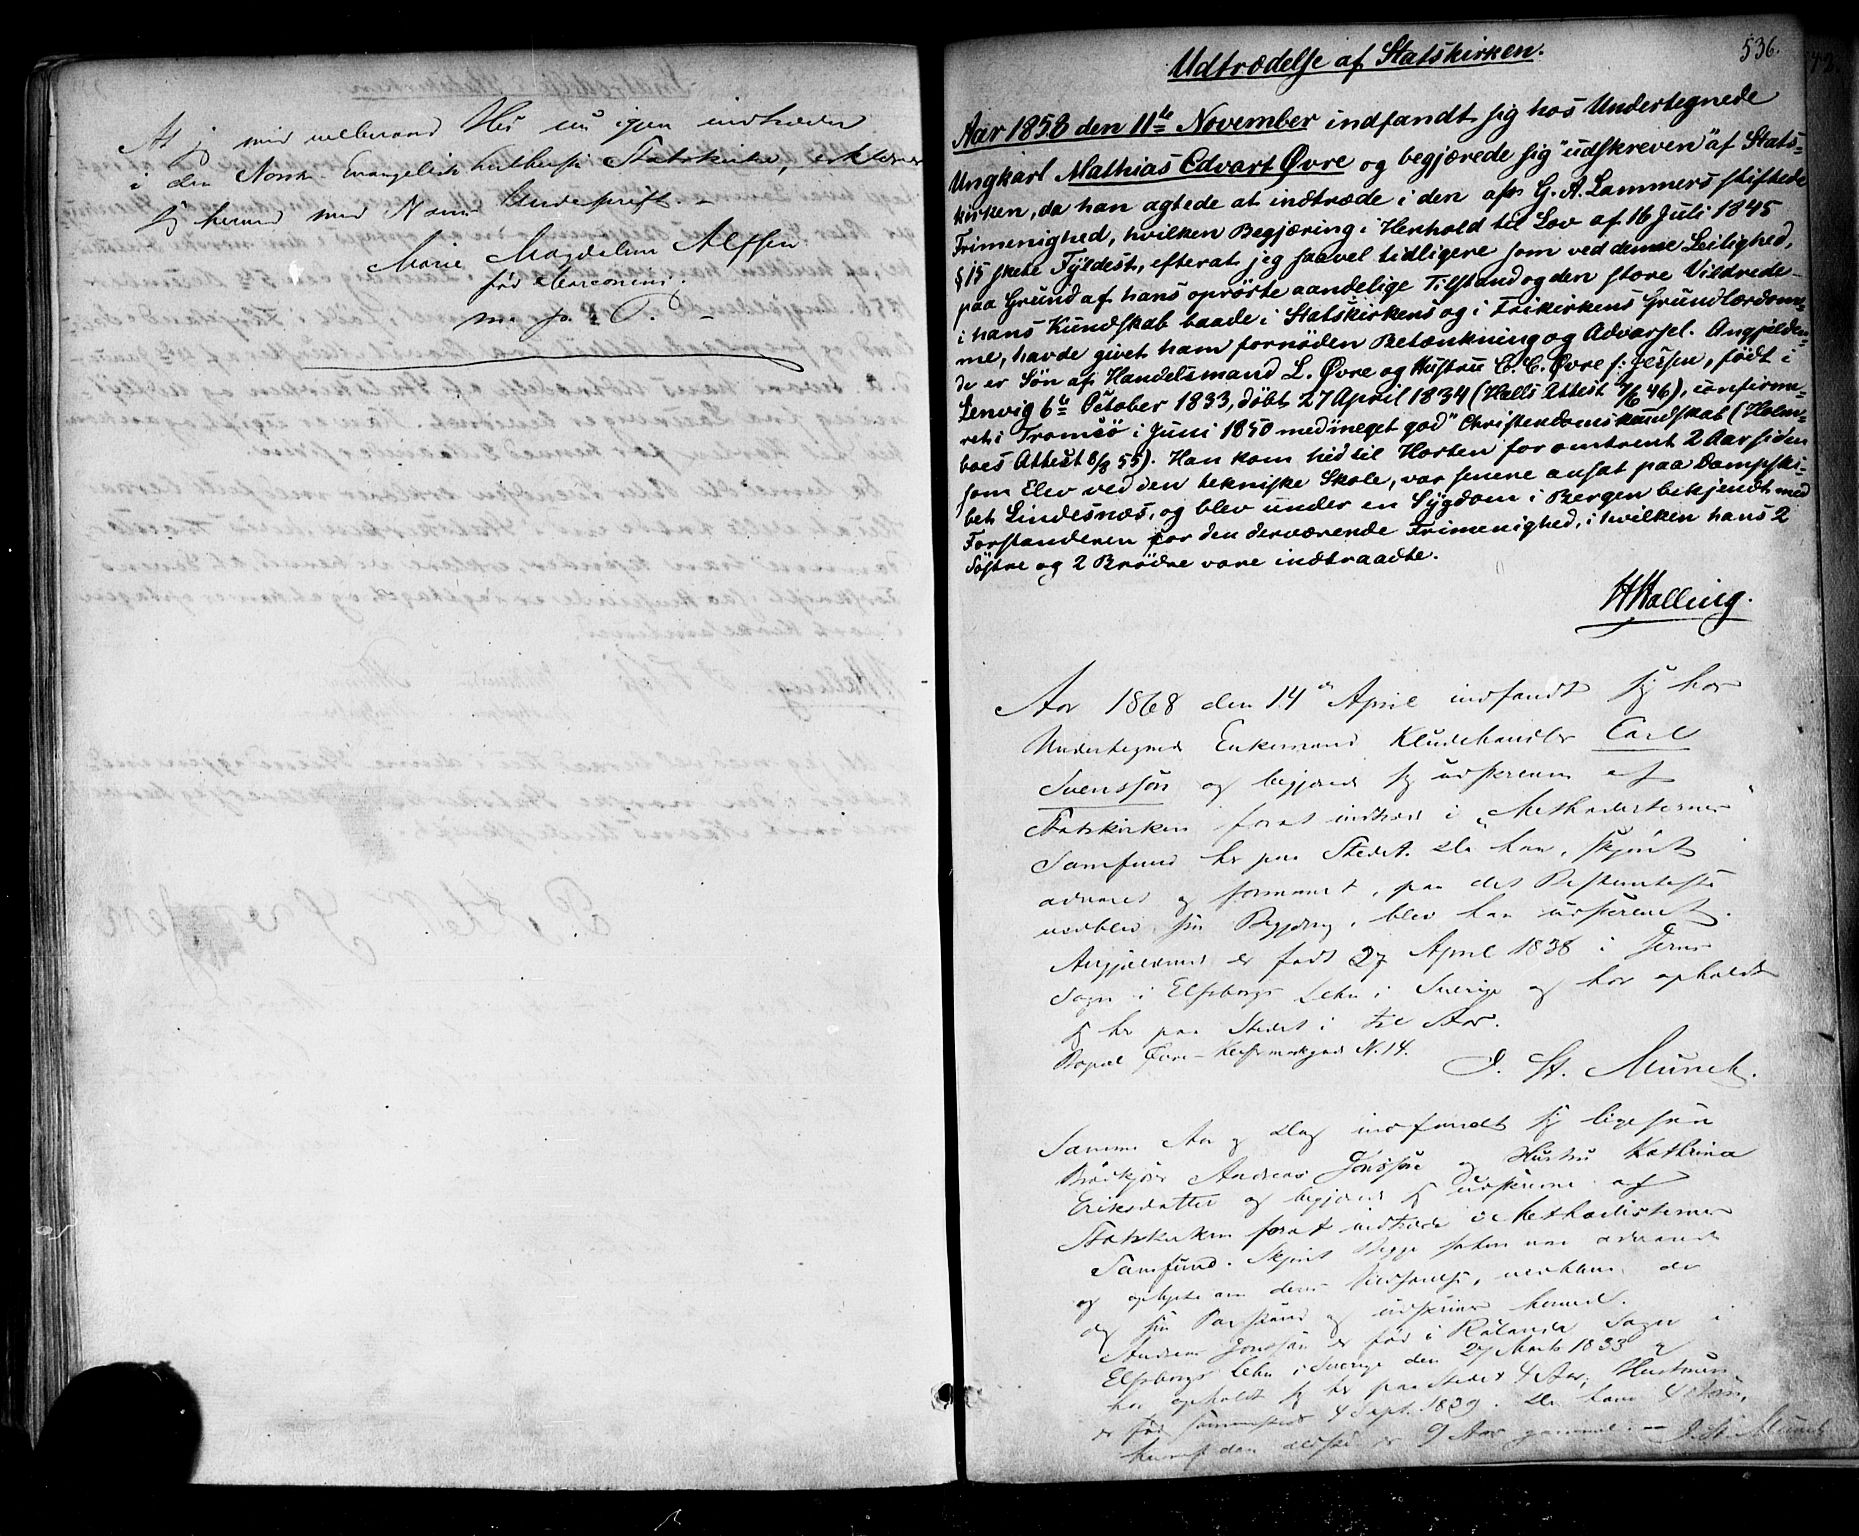 At jeg med velberaad Hu nu igjen indtræder
i den Norsk-Evangelisk lutherske Statskirke, erklærer
jeg herved med Navns Underskrift. –
Marie Magdalene Alfsen
født Marconini.
m. p. P. –
536.
Udtrædelse af Statskirken.
Aar 1858 den 11te November indfandt sig hos Undertegnede
Ungkarl Mathias Edvart Øvre og begjærede sig "udskreven" af Stats-
kirken, da han agtede at indtræde i den af G. A. Lammers stiftede
Frimenighed, hvilken Begjæring i Henhold til Lov af 16 Juli 1845
§ 15 skete Fyldest, efterat jeg saavel tidligere som ved denne Leilighed,
paa Grund af hans oprørte aandelige Tilstand og den store Vildrede
i hans Kundskab baade i Statskirkens og i Frikirkens Grundlærdom-
me, havde givet ham fornøden Betænkning og Advarsel. Angjelden-
de er Søn af Handelsmand L. Øvre og Hustru C. C. Øvre f: Jessen, født i
Lenvig 6te October 1833, døbt 27 April 1834 (Hells Attest 7/6 46), confirme-
ret i Tromsö i Juni 1850 med "meget god" Christendomskundskab (Holm-
boes Attest 8/8 55). Han kom hid til Horten for omtrent 2 Aar siden
som Elev ved den tekniske Skole, var senere ansat paa Dampski-
bet Lindesnæs, og blev under en Sygdom i Bergen bekjendt med
Forstanderen for den derværende Frimenighed, i hvilken hans 2
Søstre og 2 Brødre vare indtraadte.
H Halling.
Aar 1868 den 14de April indfandt sig hos
Undertegnede Enkemand Kludehandler Carl
Svenssön og begjærede sig udskreven af
Statskirken forat indtræde i "Methodisternes"
Samfund her paa Stedet. Da han, skjönt
advaret og formanet, paa det Bestemteste
vedblev sin Begjæring, blev han udskrevet.
Angjældende er født 27 April 1838 i
Sogn i Elfsborgs Lehn i Sverige og har opholdt
sig her paa Stedet i Aar.
Bopæl Øvre-Keisermarkgade N. 14.
J. St. Munch.
Samme Aar og Dag indfandt sig ligesaa
Brödkjører Andreas Jonssøn og Hustru Kathrina
Eriksdatter og begjærede sig udskrevne af
Statskirken forat indtræde i Methodisternes
Samfund. Skjönt Begge advarede
og oplyste om deres Vildfarelse, vedbleve de
dog sin Paastand og udskrives herved.
Andreas Jonssøn er født i Rölanda Sogn i
Elfsborgs Lehn i Sverige den 27 Marts 1833 og
har opholdt sig her paa Stedet 4 Aar; Hustruen
er født sammesteds 4 Sept. 1829. De have 4 Börn,
hvoraf den ældste er 9 Aar gammel. — J. St. Munch